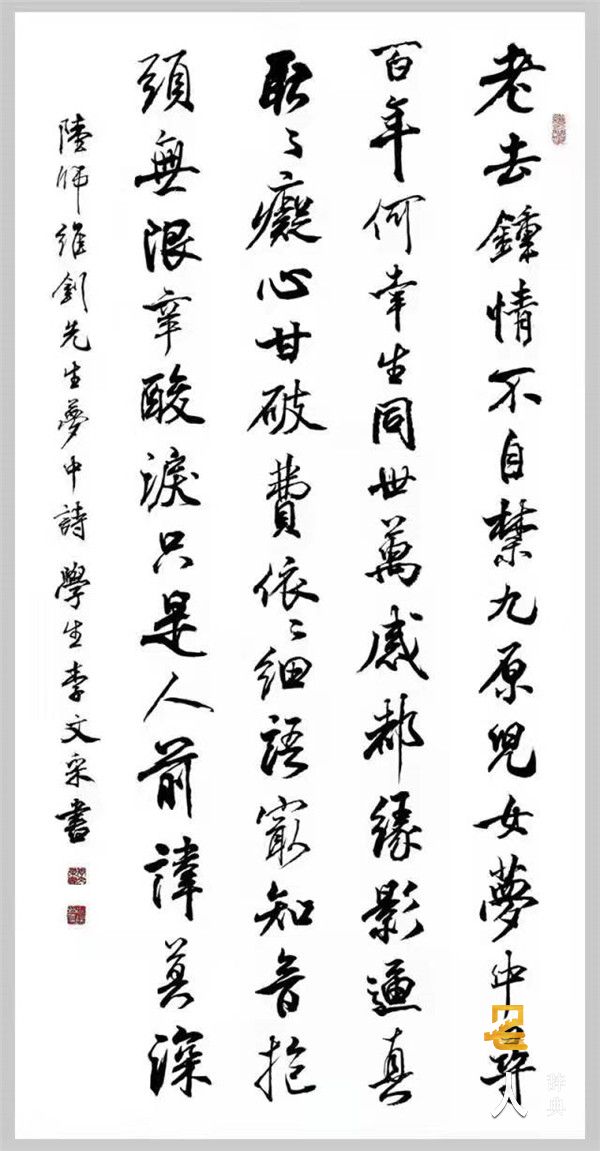 老去鍾情不自禁九原兒女夢中尋
百年何幸生同世萬感都緣影逼真
耿々癡心甘破費依々細語㝡知音抱
頭無限辛酸淚只是人前諱莫深
陸師維釗先生夢中詩 學生李文采書
名人
辞典